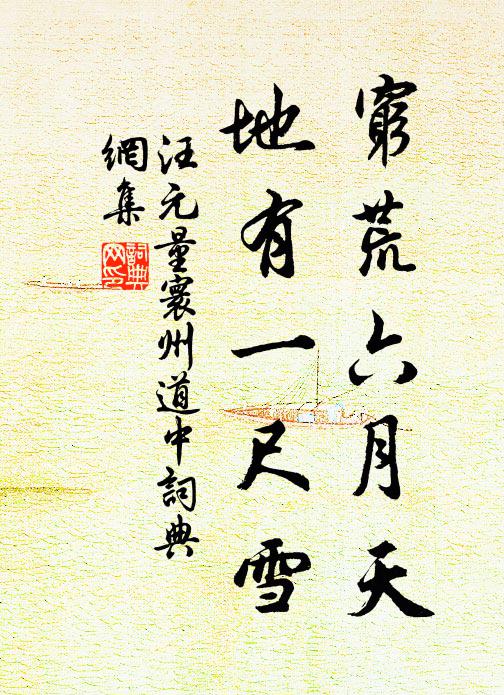 窮荒六月天
地有一尺雪
汪元量寰州道中詞典
網集
詞典
网印